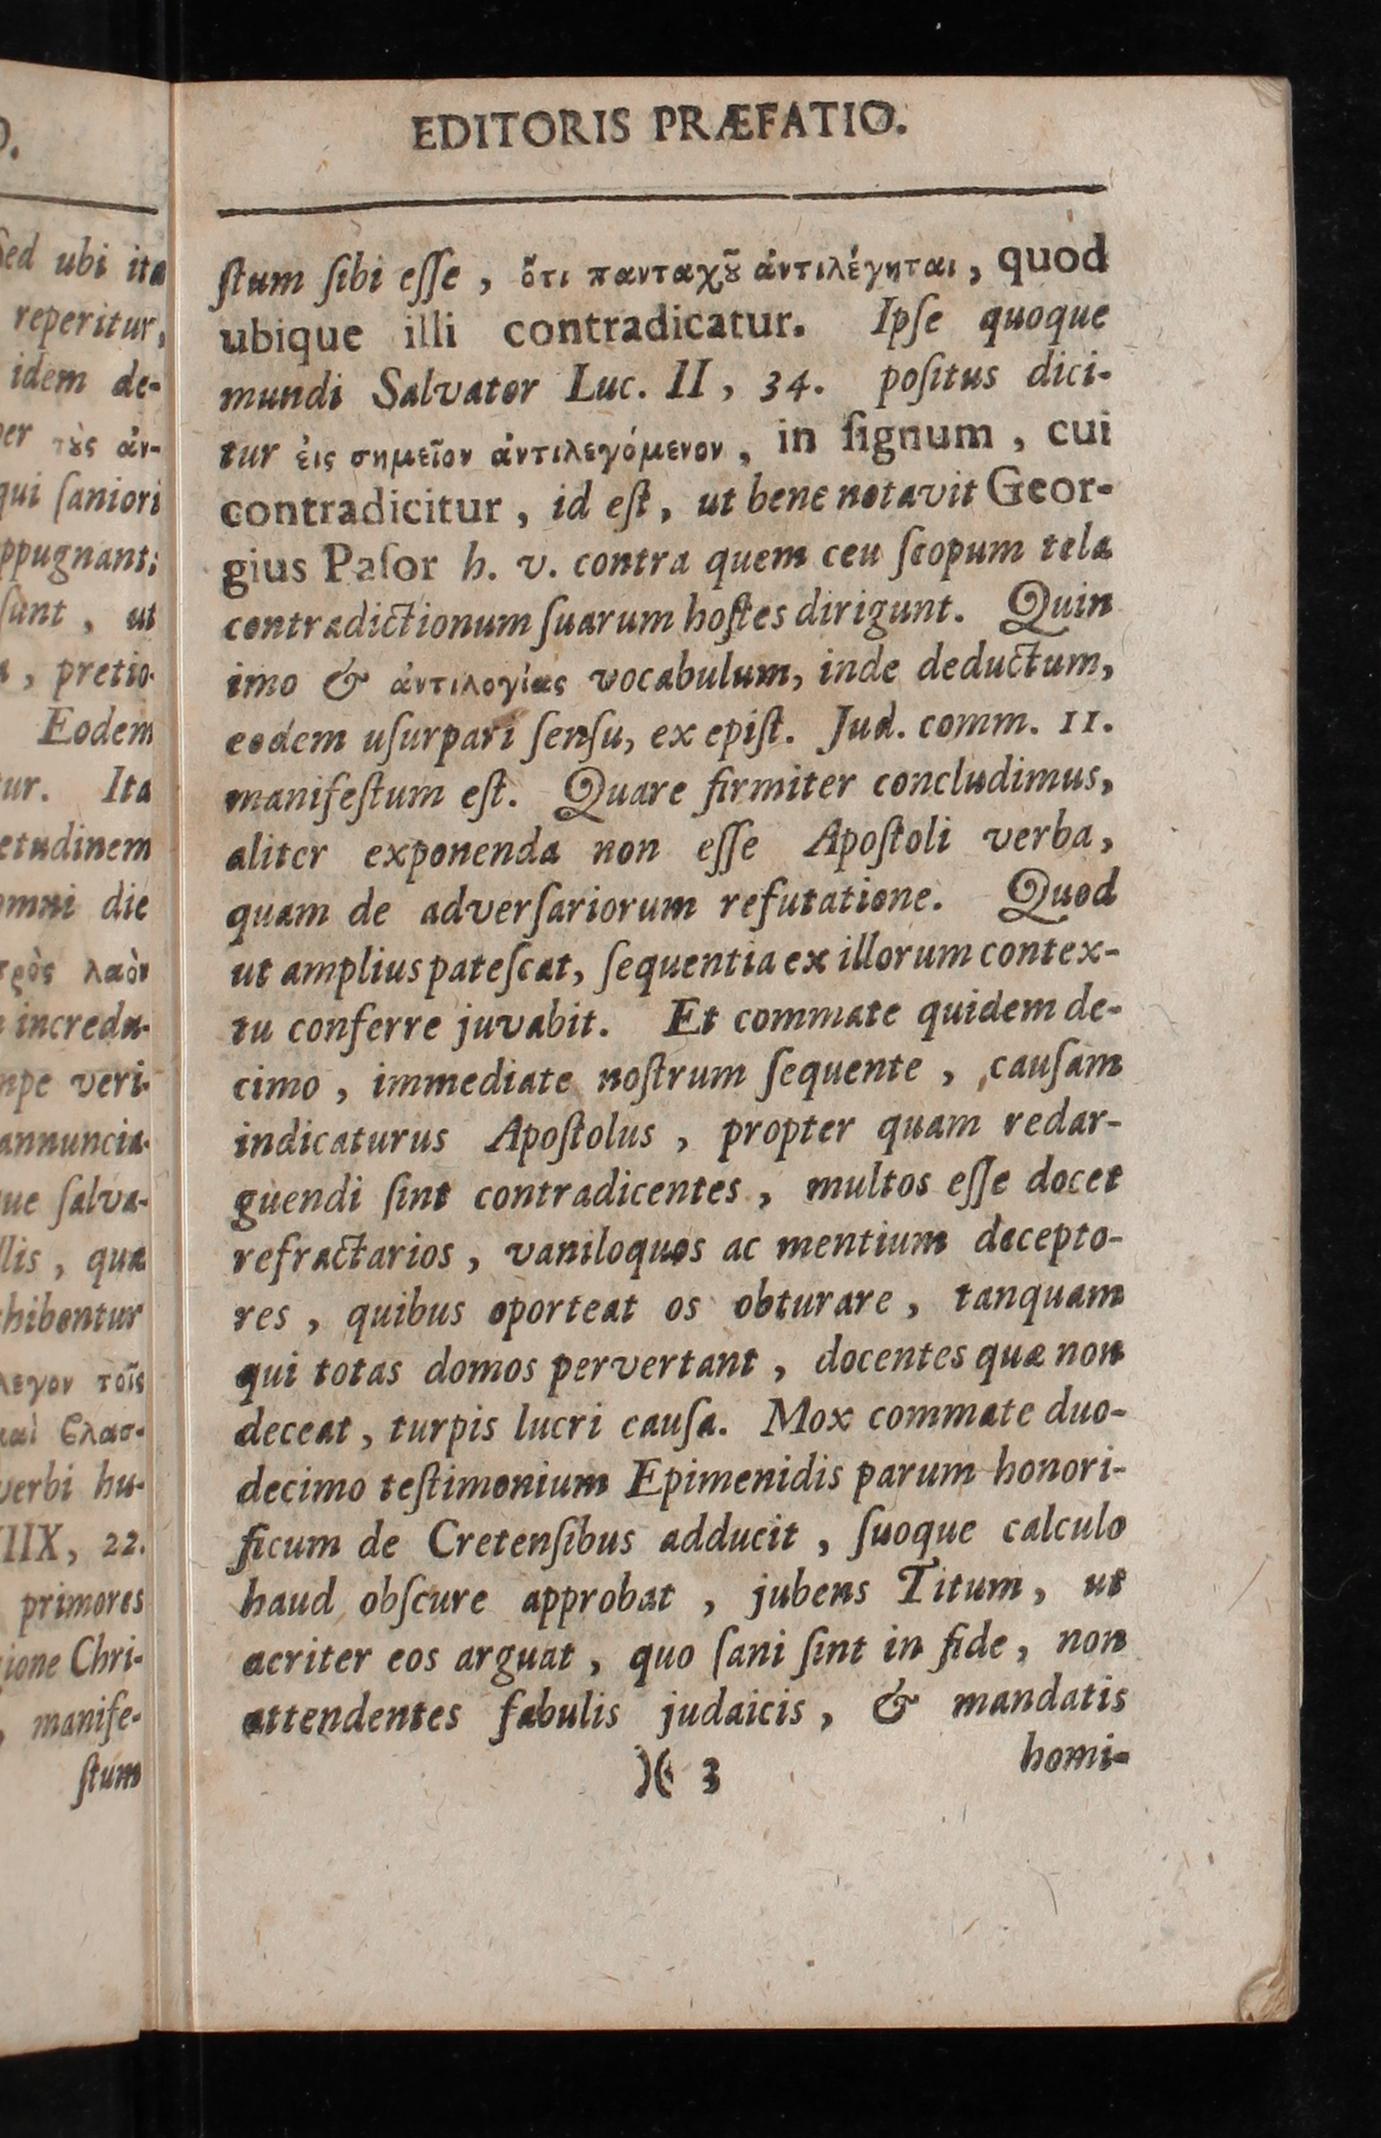 EDITORIS PRÆFATIO.
ſtum ſibi eſſe, ὅτι πανταχȣ͂ ἀντιλέγηται, quod
ubique illi contradicatur. Ipſe quoque
mundi Salvator Luc. II, 34. poſitus dici-
tur ἐις σημεῖον ἀντιλεγόμενον, in ſignum, cui
contradicitur, id eſt, ut bene notavit Geor-
gius Paſor h. v. contra quem ceu ſcopum tela
contradictionum ſuarum hoſtes dirigunt. Quin
imo & ἀντιλογίας vocabulum, inde deductum,
eodem uſurpari ſenſu, ex epiſt. Jud. comm. 11.
manifeſtum eſt. Quare firmiter concludimus,
aliter exponenda non eſſe Apoſtoli verba,
quam de adverſariorum refutatione. Quod
ut amplius pateſcat, ſequentia ex illorum contex-
tu conferre juvabit. Et commate quidem de-
cimo, immediate noſtrum ſequente, cauſam
indicaturus Apoſtolus, propter quam redar-
guendi ſint contradicentes, multos eſſe docet
refractarios, vaniloquos ac mentium decepto-
res, quibus oporteat os obturare, tanquam
qui totas domos pervertant, docentes quæ non
deceat, turpis lucri cauſa. Mox commate duo-
decimo teſtimonium Epimenidis parum honori-
ficum de Cretenſibus adducit, ſuoque calculo
haud obſcure approbat, jubens Titum, ut
acriter eos arguat, quo ſani ſint in fide, non
attendentes fabulis judaicis, & mandatis
)( 3 homi-
D.
Sed ubi ita
reperitur,
idem de-
τȣ̀ς ἀν-
qui ſaniori
ppugnant;
ſunt, ut
, pretio-
Eodem
tur. Ita
etudinem
omni die
λαὸν
incredu-
veri-
annuncia-
ſalva-
quæ
hibentur
λεγον τοῖς
verbi hu-
IIX, 22.
primores
ione Chri-
, manife-
ſtum